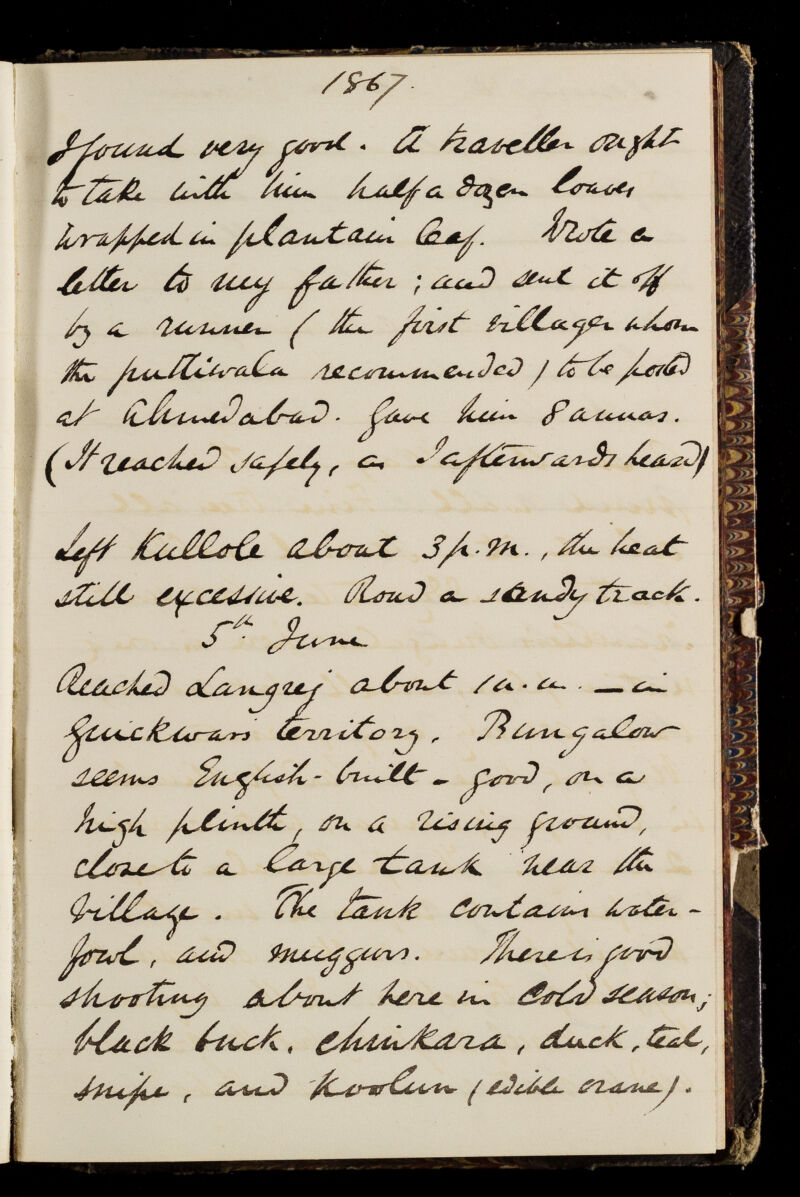 1867.
I found very good. A traveller ought
to take with him half a dozen loaves
wrapped in plantain leaf. Wrote a
letter to my father; and sent it off
by a runner (the first villager whom
the puttiwala recommended) to be posted
at Ahmedabad. Gave him 8 annas.
(It reached safely, as I afterwards heard)
Left Kullole about 3 p.m., the heat
still excessive. Road a sandy track.
5th. June
Reached Langrej about 1 a.m. — in
Guickwars territory. Bungalow
seems English-built - good, on a
high plinth, on a rising ground,
close to a large tank near the
village. The tank contains water-
fowl, and muggurs. There is good
shooting about here in cold season;
black buck, chinkara, duck, teal,
snipe, and koolun (edible crane).